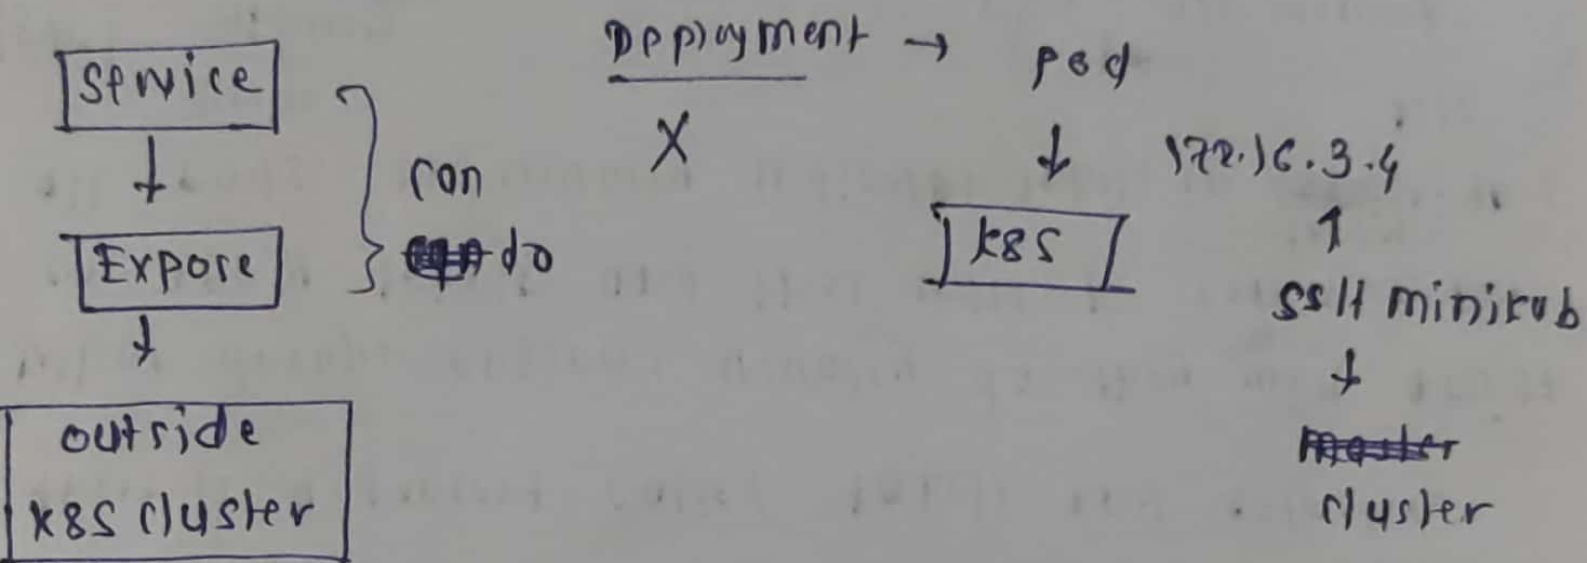 Service
Expose
outside
k8s cluster
can
do
Deployment → pod
X
k8s
172.16.3.4
ssH minikub
master
cluster